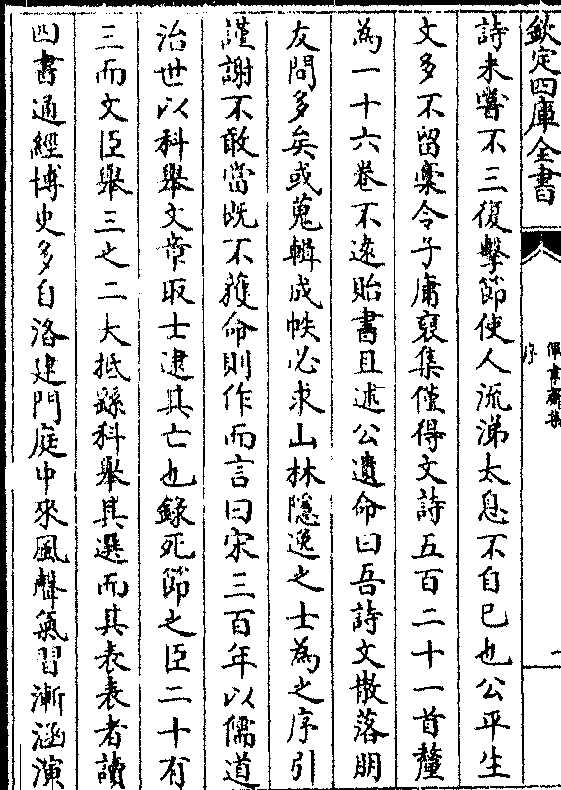 欽定四庫全書
佩韋齋集
序
一
詩未嘗不三復擊節使人流涕太息不自已也公平生
文多不留稾令子庸裒集僅得文詩五百二十一首釐
為一十六卷不逺貽書且述公遺命曰吾詩文散落朋
友間多矣或蒐輯成帙必求山林隱逸之士為之序引
謹謝不敢當既不獲命則作而言曰宋三百年以儒道
治世以科舉文章取士逮其亡也錄死節之臣二十有
三而文臣舉三之二大抵繇科舉其選而其表表者讀
四書通經博史多自洛建門庭中來風聲氣習漸涵演